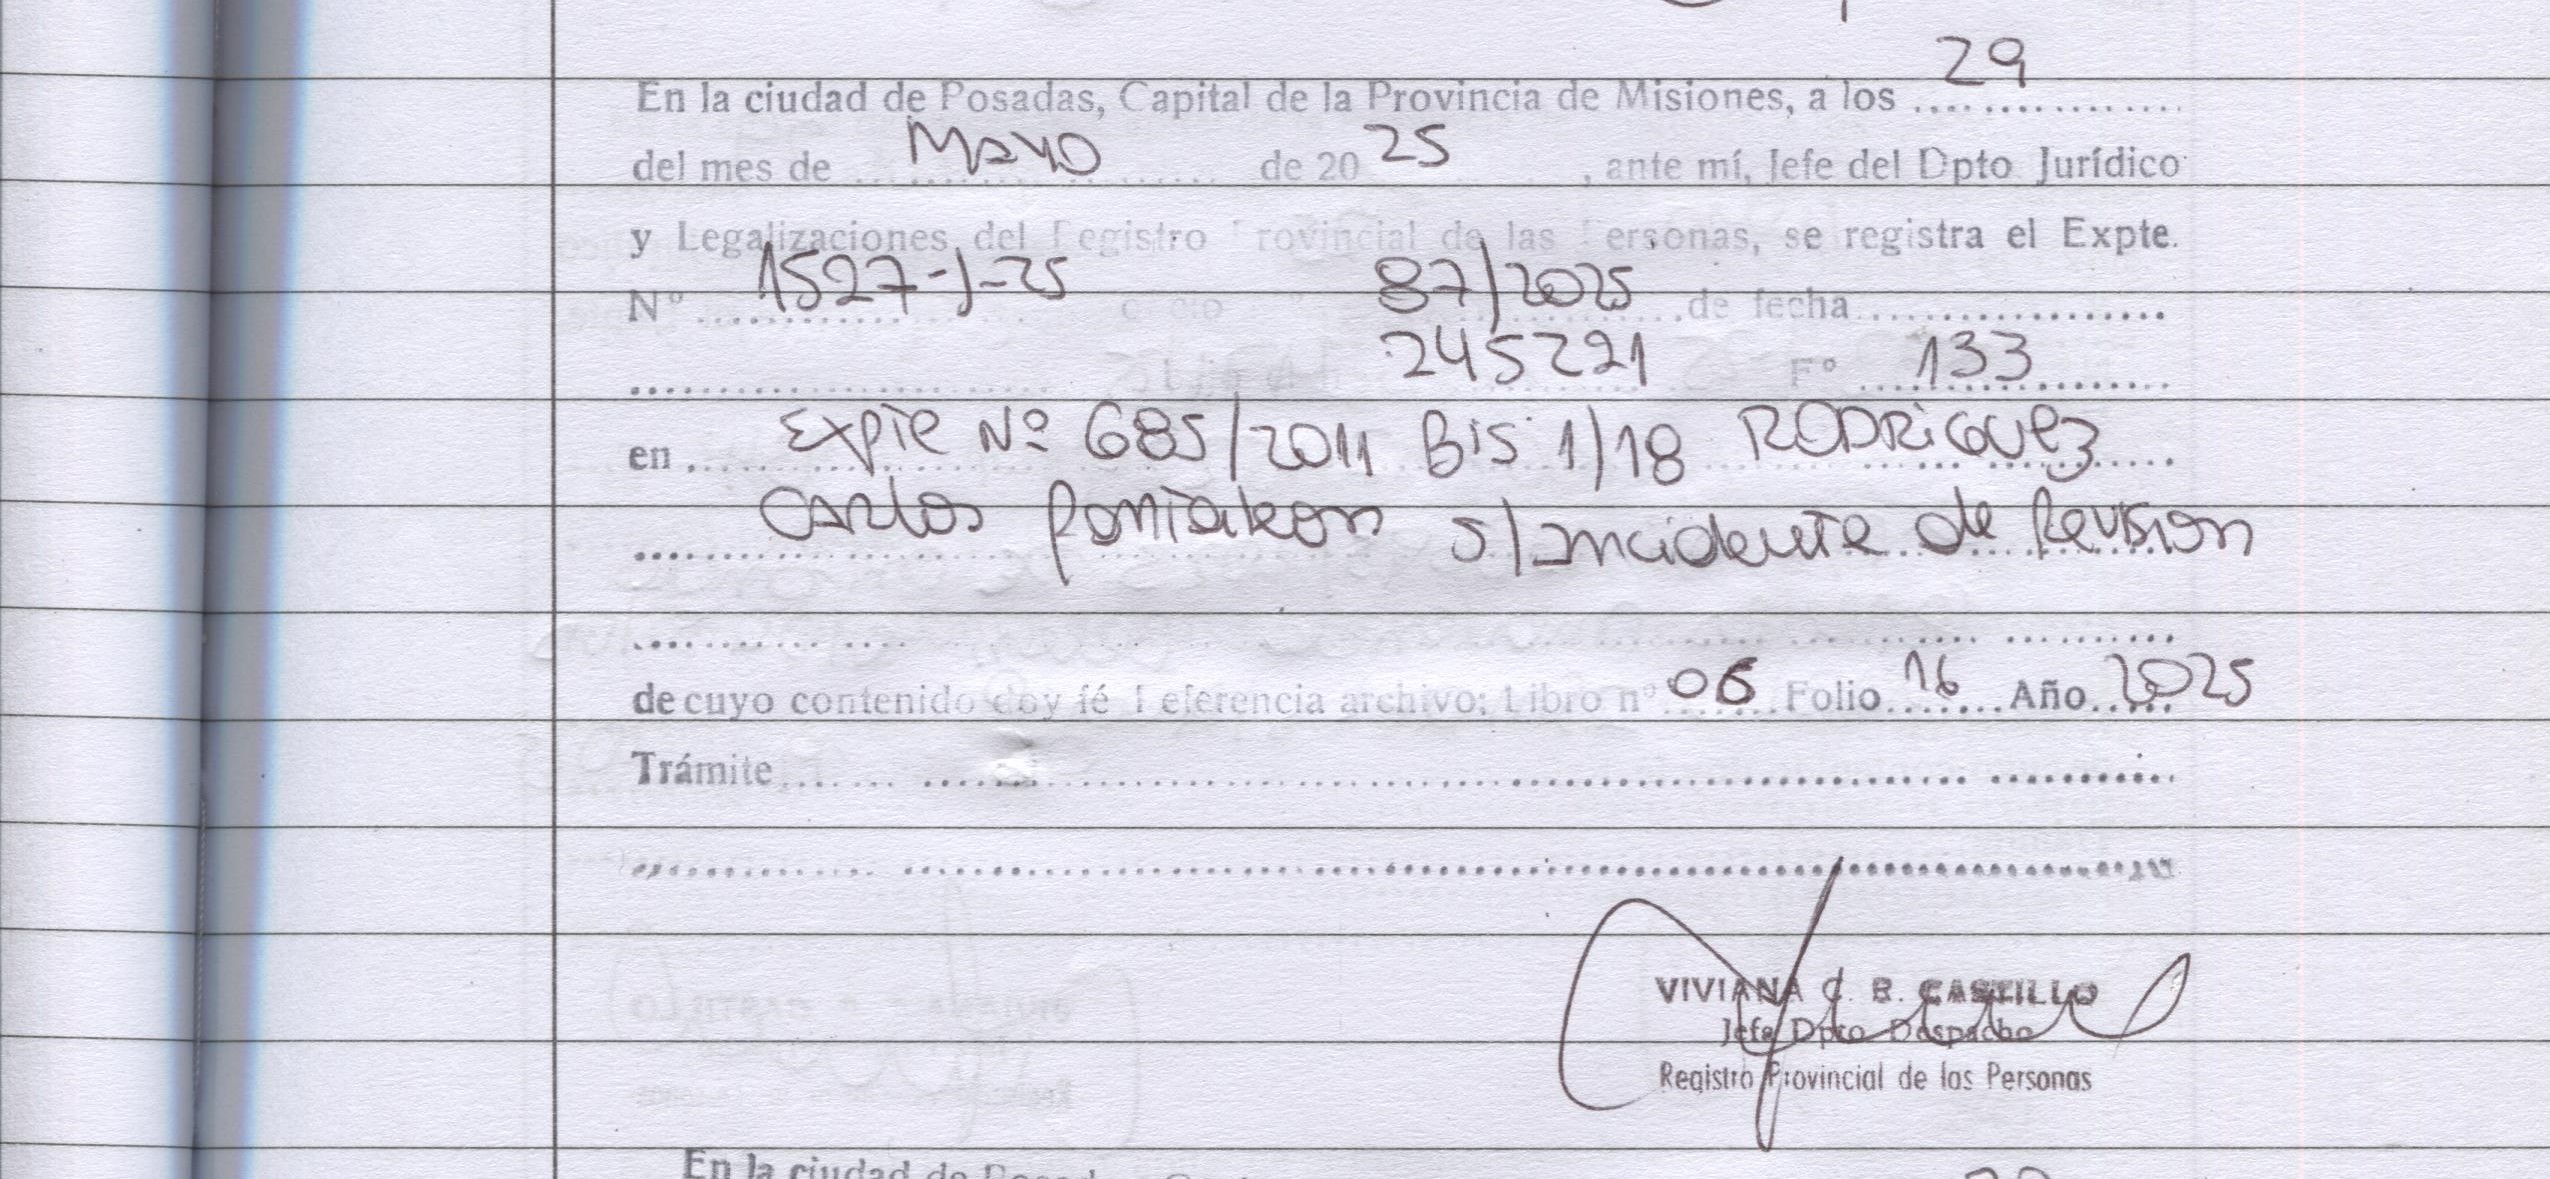 29
En la ciudad de Posadas, Capital de la Provincia de Misiones, a los ................
del mes de ..... Mayo ..... de 20 25 , ante mí, Jefe del Dpto Jurídico
y Legalizaciones del Registro Provincial de las Personas, se registra el Expte.
Nº ..... 1527-J-25 ..... 87/2025 ..... de fecha ..................
..... 245221 Fº ..... 133 .....
en ..... Expte Nº 685/2011 Bis 1/18 RODRIGUEZ
Carlos Pantaleon s/Incidente de Revision
de cuyo contenido doy fé Referencia archivo: Libro nº 06 Folio 16 Año 2025
Trámite ..............................
VIVIANA C. B. CASTILLO
Jefe Dpto Despacho
Registro Provincial de las Personas
En la ciudad de Posadas